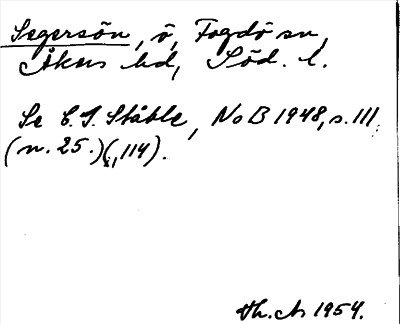 Segersön, ö, Fogdö sn,
Åkers hd, Söd. l.
Se C. I. Ståhle, NoB 1948, s. 111
(n. 25.)(, 114).
1954.